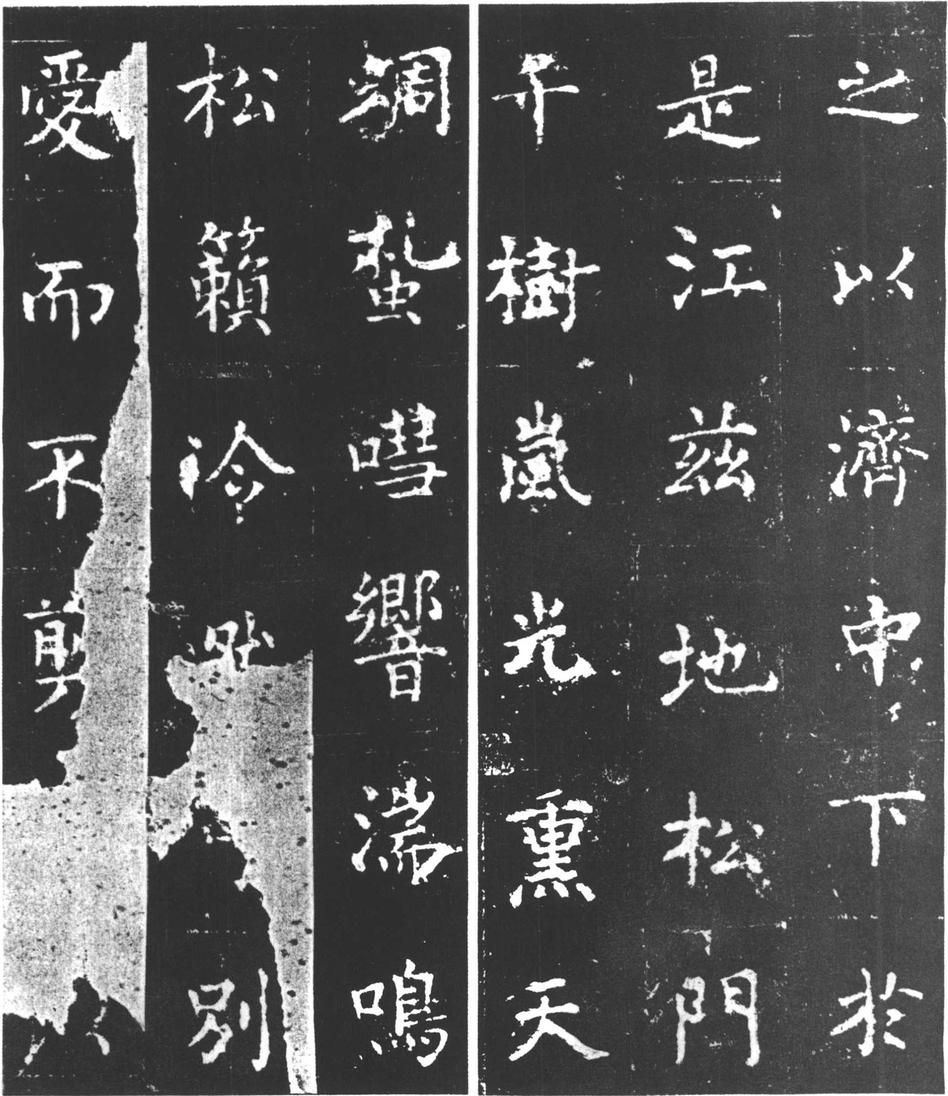 之以濟下於
是江茲地松門
千樹嵐光熏天
蜩蚻嘒響湍鳴
松籟泠別
愛而不剪